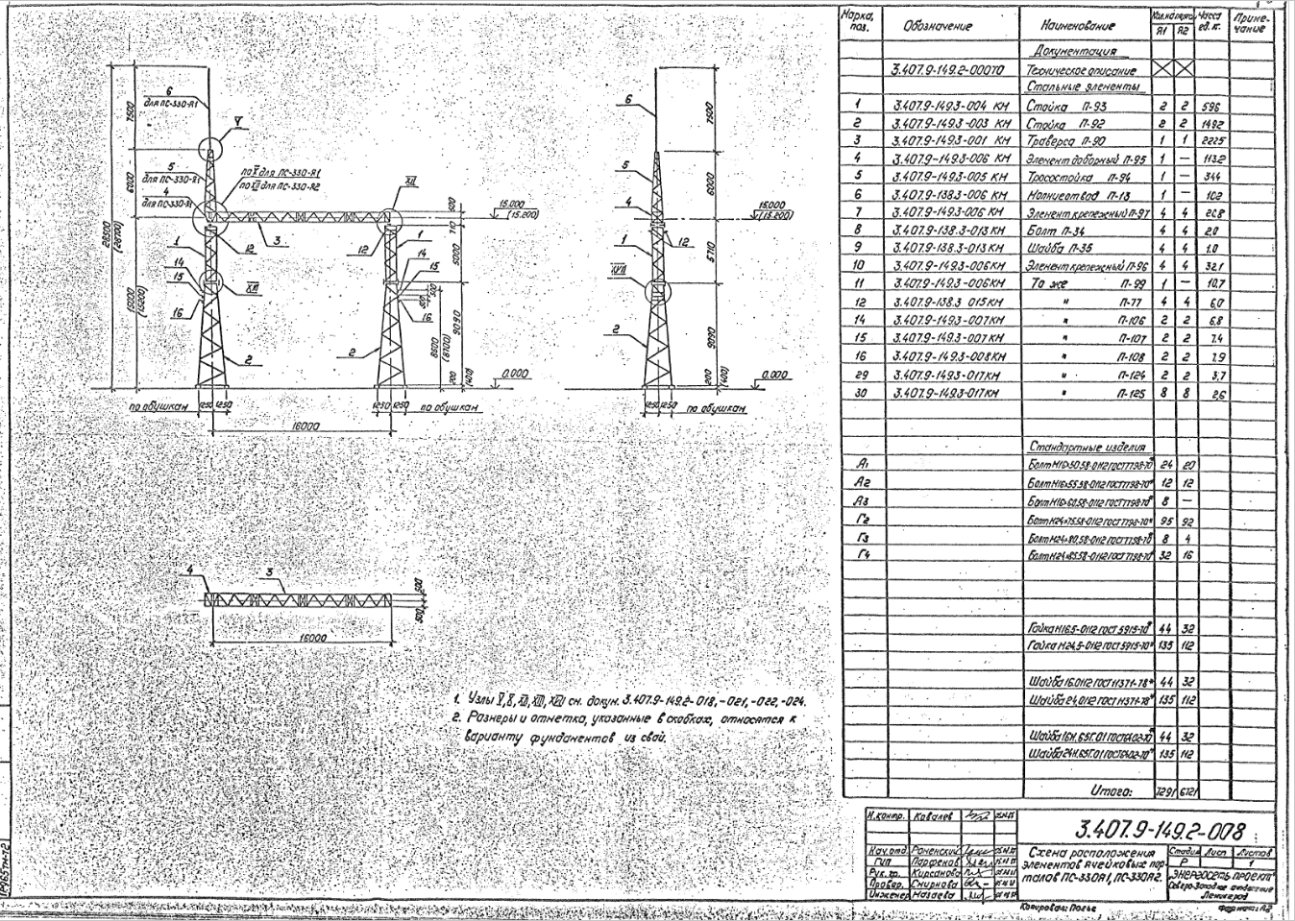 6
для ПС-330-Я1
V
7500
5
для ПС-330-Я1
4
для ПС-330-Я1
по X для ПС-330-Я1
по XII для ПС-330-Я2
6000
15.000
(15.200)
500
3
1
12
12
1
14
15
16
14
15
16
2
2
5000
9090
8600
(8700)
200
0.000
по обушкам
1250 1250
1250 1250
по обушкам
16000
6
7500
5
6000
4
15.000
(15.200)
12
1
5710
XVII
2
9090
200
(400)
0.000
1250 1250
по обушкам
4
3
500
500
16000
2. Размеры и отметка, указанные в скобках, относятся к
варианту фундаментов из свай.
Марка, поз. Обозначение Наименование Я1 Я2 Масса ед. кг. Примечание
Документация
3.407.9-149.2-00ТО Техническое описание
Стальные элементы
1 3.407.9-149.3-004 КМ Стойка П-93 2 2 596
2 3.407.9-149.3-003 КМ Стойка П-92 2 2 1492
3 3.407.9-149.3-001 КМ Траверса П-90 1 1 2225
4 3.407.9-149.3-006 КМ Элемент доборный П-95 1 — 113.2
5 3.407.9-149.3-005 КМ Тросостойка П-94 1 — 344
6 3.407.9-138.3-006 КМ Молниеотвод П-13 1 — 102
7 3.407.9-149.3-006 КМ Элемент крепежный П-97 4 4 20.8
8 3.407.9-138.3-013 КМ Болт П-34 4 4 2.0
9 3.407.9-138.3-013 КМ Шайба П-35 4 4 1.0
10 3.407.9-149.3-006 КМ Элемент крепежный П-96 4 4 32.1
11 3.407.9-149.3-006 КМ То же П-99 1 — 10.7
12 3.407.9-138.3 015 КМ " П-77 4 4 6.0
14 3.407.9-149.3-007 КМ " П-106 2 2 6.8
15 3.407.9-149.3-007 КМ " П-107 2 2 7.4
16 3.407.9-149.3-008 КМ " П-108 2 2 7.9
29 3.407.9-149.3-017 КМ " П-124 2 2 3,7
30 3.407.9-149.3-017 КМ " П-125 8 8 2.6
Стандартные изделия
А1 Болт М16×50.58-0112 ГОСТ 7798-70* 24 20
А2 Болт М16×55.58-0112 ГОСТ 7798-70* 12 12
А3 Болт М16×60.58-0112 ГОСТ 7798-70* 8 —
Г2 Болт М24×75.58-0112 ГОСТ 7798-70* 95 92
Г3 Болт М24×80.58-0112 ГОСТ 7798-70* 8 4
Г4 Болт М24×85.58-0112 ГОСТ 7798-70* 32 16
Гайка М16.5-0112 ГОСТ 5915-70* 44 32
Гайка М24.5-0112 ГОСТ 5915-70* 135 112
Шайба 16.0112 ГОСТ 11371-78* 44 32
Шайба 24.0112 ГОСТ 11371-78* 135 112
Шайба 16Н.65Г.01 ГОСТ 6402-70* 44 32
Шайба 24Н.65Г.01 ГОСТ 6402-70* 135 112
Итого: 7291 6121
Н.контр. Ковалев
3.407.9-149.2-008
Нач.отд. Роменский
ГИП Парфенов
Рук.гр. Кирсанова
Провер. Смирнова
Инженер Назаева
Схема расположения
элементов ячейковых пор-
талов ПС-330Я1, ПС-330Я2.
Стадия Лист Листов
Р 1
"Энергосетьпроект"
Северо-Западное отделение
Ленинград
Копировал: Полье
Формат: А2